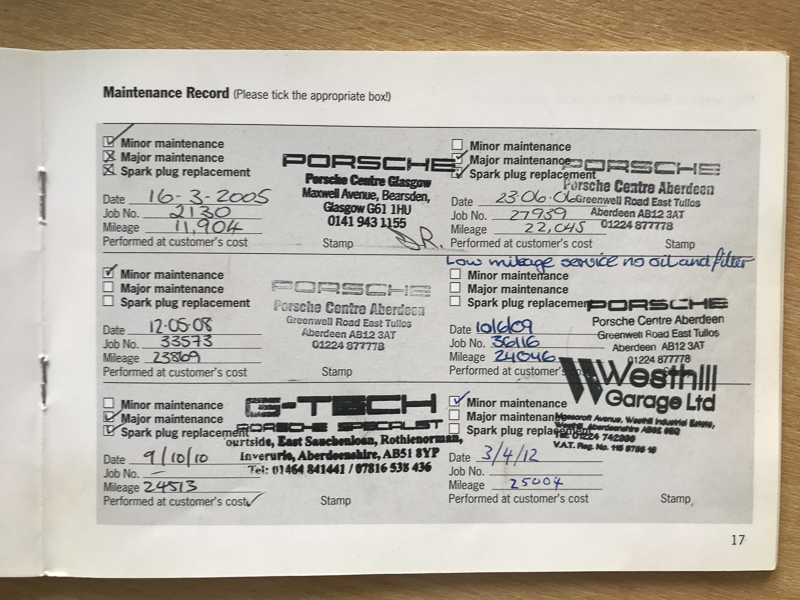 Maintenance Record (Please tick the appropriate box!)
Minor maintenance
Major maintenance
Spark plug replacement
Date 16-3-2005
Job No. 2130
Mileage 11,904
Performed at customer's cost
Stamp
PORSCHE
Porsche Centre Glasgow
Maxwell Avenue, Bearsden,
Glasgow G61 1HU
0141 943 1155
Minor maintenance
Major maintenance
Spark plug replacement
Date 23.06.06
Job No. 27939
Mileage 22,045
Performed at customer's cost
Stamp
PORSCHE
Porsche Centre Aberdeen
Greenwell Road East Tullos
Aberdeen AB12 3AT
01224 877778
Minor maintenance
Major maintenance
Spark plug replacement
Date 12-05-08
Job No. 33573
Mileage 23869
Performed at customer's cost
Stamp
PORSCHE
Porsche Centre Aberdeen
Greenwell Road East Tullos
Aberdeen AB12 3AT
01224 877778
Low mileage service no oil and filter
Minor maintenance
Major maintenance
Spark plug replacement
Date 10/6/09
Job No. 36116
Mileage 24046
Performed at customer's cost
PORSCHE
Porsche Centre Aberdeen
Greenwell Road East Tullos
Aberdeen AB12 3AT
01224 877778
Minor maintenance
Major maintenance
Spark plug replacement
Date 9/10/10
Job No. —
Mileage 24513
Performed at customer's cost
Stamp
G-TECH
PORSCHE SPECIALIST
ourtside, East Sauchenloan, Rothienorman,
Inverurie, Aberdeenshire, AB51 8YP
Tel: 01464 841441 / 07816 538 436
Minor maintenance
Major maintenance
Spark plug replacement
Date 3/4/12
Job No.
Mileage 25004
Performed at customer's cost
Stamp
Westhill
Garage Ltd
Avenue, Westhill Industrial Estate,
Westhill, Aberdeenshire
Tel: 01224
V.A.T. Reg. No.
17